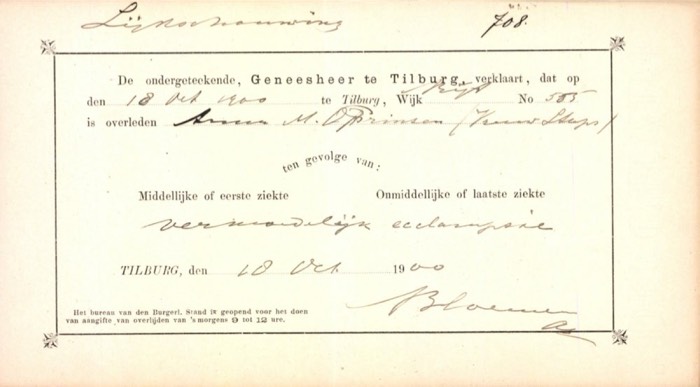 Lijkschouwing 708.
De ondergeteekende, Geneesheer te Tilburg, verklaart, dat op
den 18 Oct 1900 te Tilburg, Wijk No 585
is overleden Anna M. Prinsen (Vrouw Staps)
ten gevolge van:
Middellijke of eerste ziekte Onmiddellijke of laatste ziekte
vermoedelijk eclampsie
TILBURG, den 18 Oct 1900
Bloemen
Het bureau van den Burgerl. Stand is geopend voor het doen
van aangifte van overlijden van 's morgens 9 tot 12 ure.